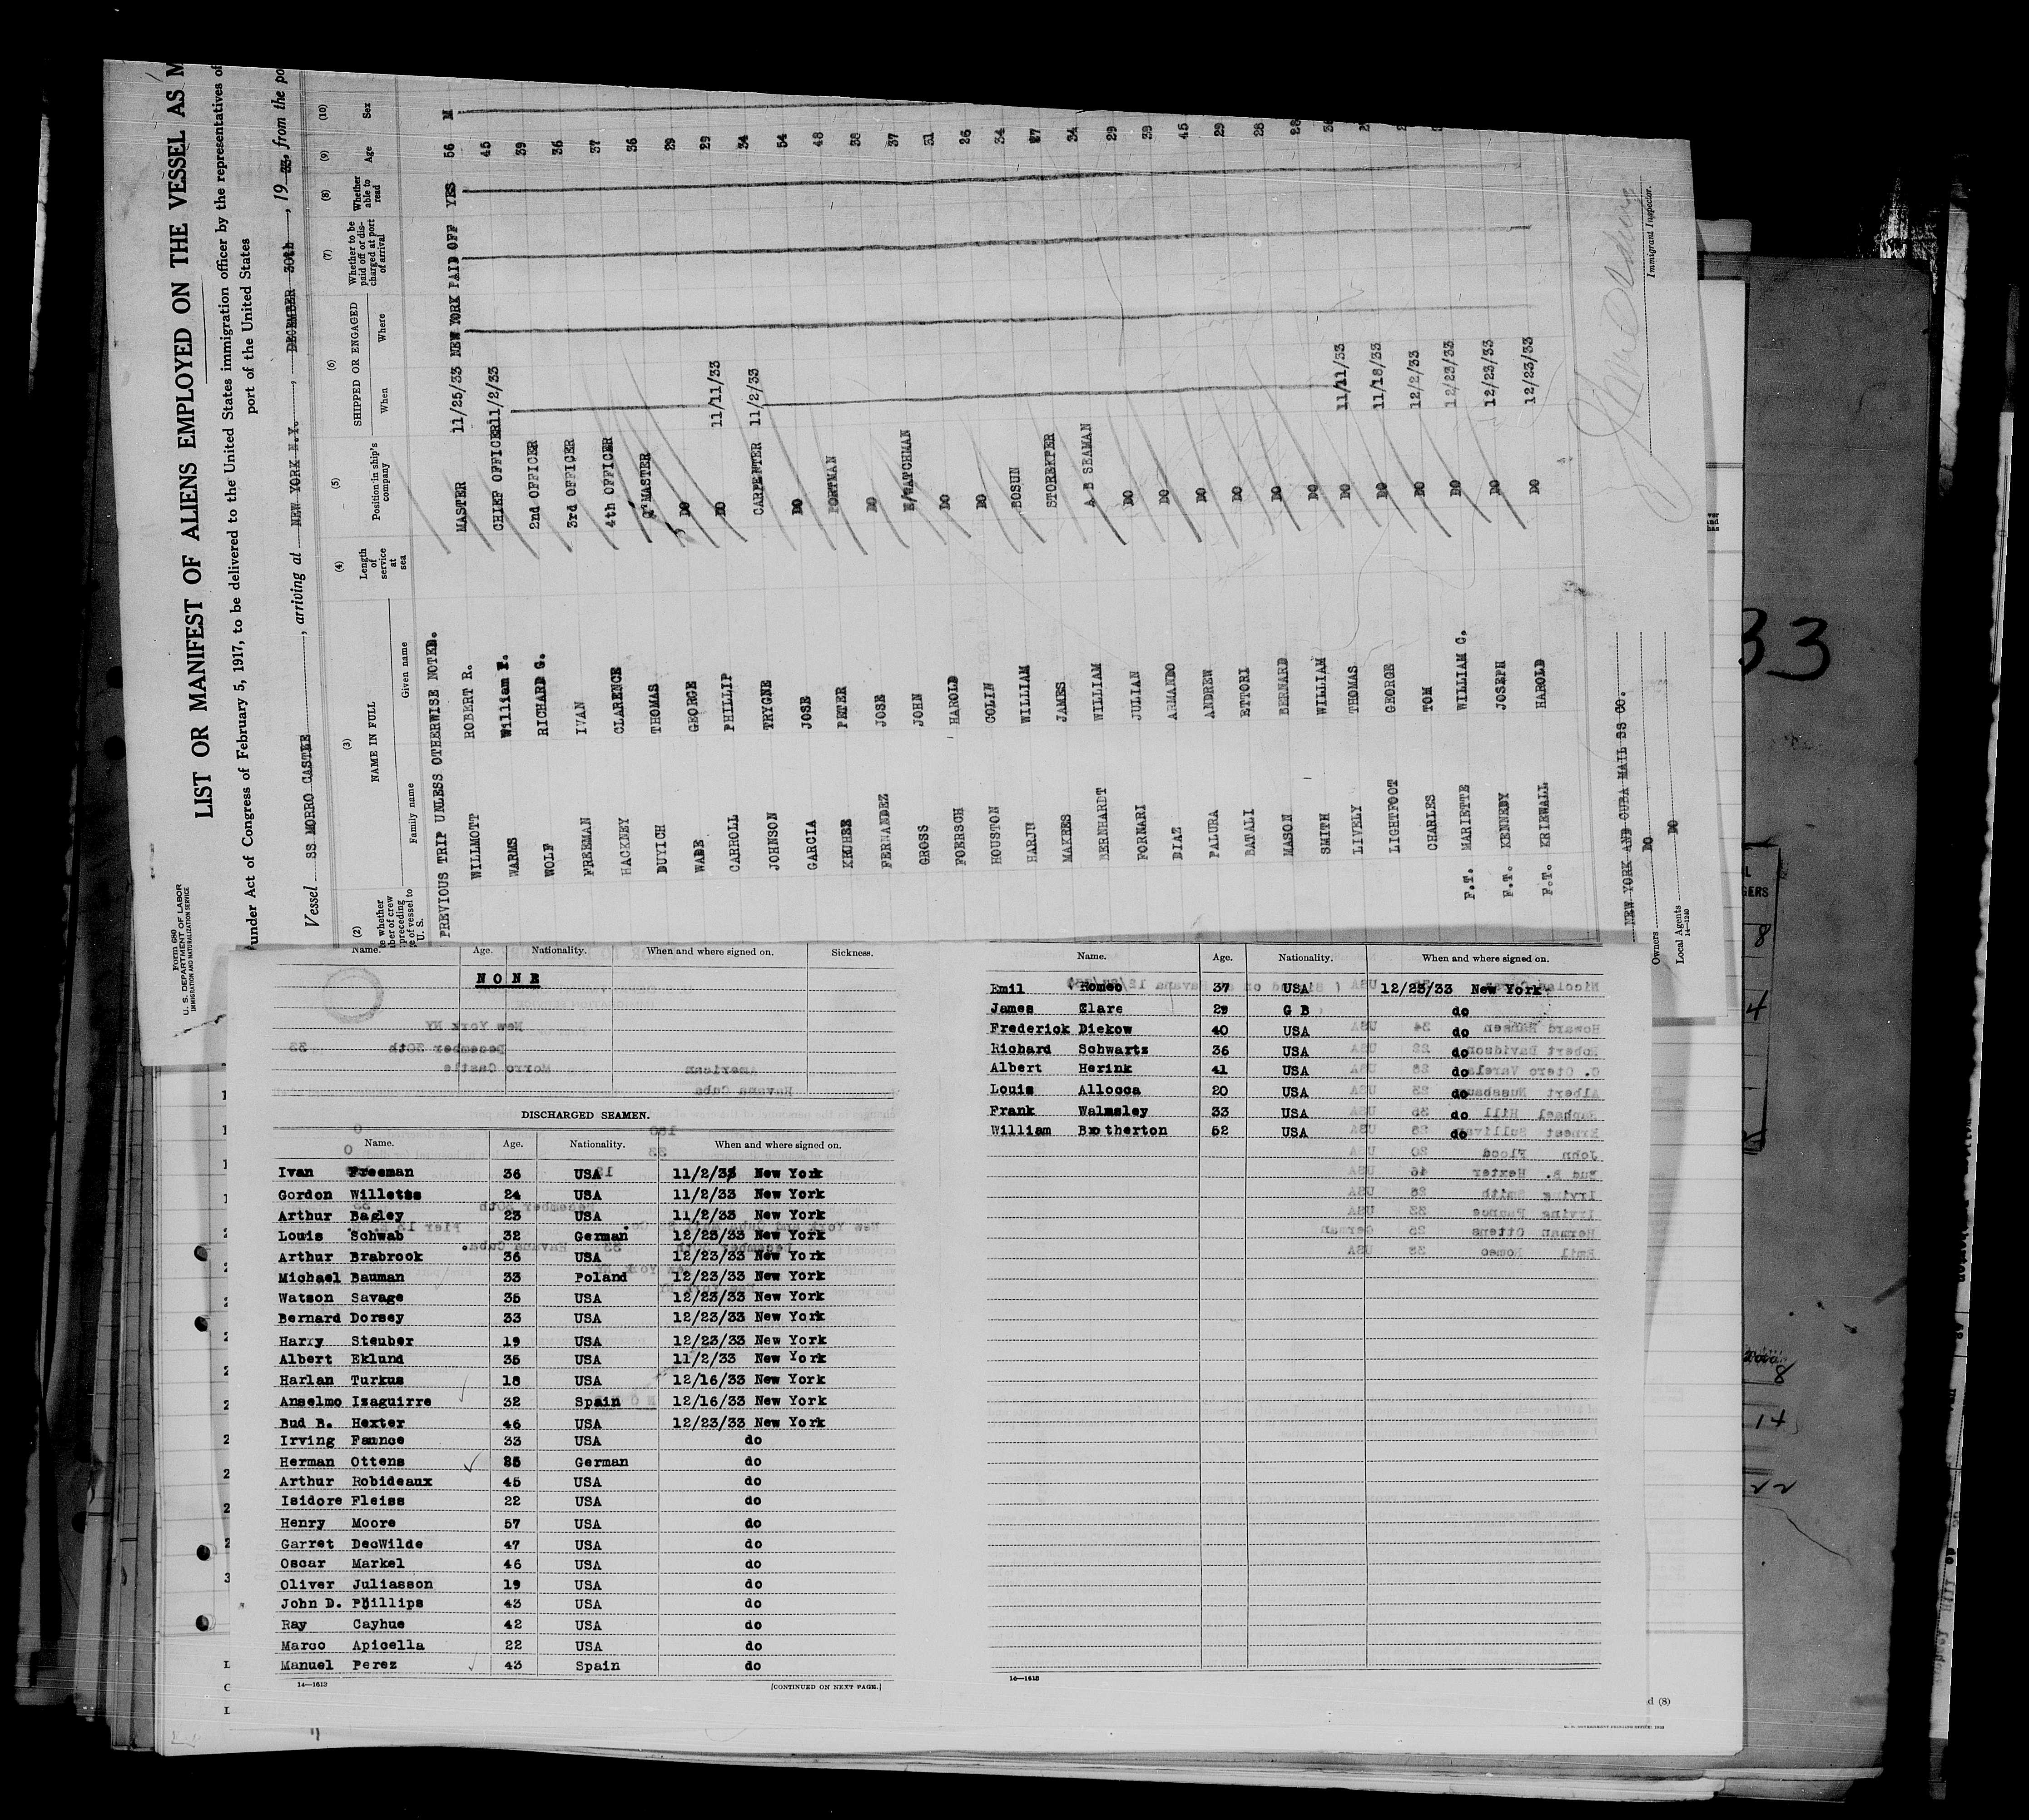 Form 680
U. S. DEPARTMENT OF LABOR
IMMIGRATION AND NATURALIZATION SERVICE
LIST OR MANIFEST OF ALIENS EMPLOYED ON THE VESSEL AS M
under Act of Congress of February 5, 1917, to be delivered to the United States immigration officer by the representatives of
port of the United States
Vessel SS MORRO CASTLE, arriving at NEW YORK N.Y., DECEMBER 30th, 19 33, from the po
(2) (3) (4) (5) (6) (7) (8) (9) (10)
NAME IN FULL
Family name Given name
Length of service at sea
Position in ship's company
SHIPPED OR ENGAGED
When Where
Whether to be paid off or discharged at port of arrival
Whether able to read
Age
Sex
PREVIOUS TRIP UNLESS OTHERWISE NOTED.
WILLMOTT ROBERT R. MASTER 11/25/33 NEW YORK PAID OFF YES 56 M
WARMS William F. CHIEF OFFICER 11/2/33 45
WOLF RICHARD G. 2nd OFFICER 39
FREEMAN IVAN 3rd OFFICER 36
HACKNEY CLARENCE 4th OFFICER 37
DUYICH THOMAS Q'MASTER 36
WADE GEORGE DO 29
CARROLL PHILLIP DO 11/11/33 29
JOHNSON TRYGNE CARPENTER 11/2/33 34
GARCIA JOSE DO 54
KRUHER PETER PORTMAN 48
FERNANDEZ JOSE DO 38
GROSS JOHN N/WATCHMAN 37
FOERSCH HAROLD DO 31
HOUSTON COLIN DO 26
HARJU WILLIAM BOSUN 34
MAKRES JAMES STOREKPER 27
BERNHARDT WILLIAM A B SEAMAN 34
FORNARI JULIAN DO 29
DIAZ ARMANDO DO 39
PALURA ANDREW DO 45
BATALI ETTORI DO 29
MASON BERNARD DO 28
SMITH WILLIAM DO 28
LIVELY THOMAS DO 11/11/33
LIGHTFOOT GEORGE DO 11/18/33
CHARLES TOM DO 12/2/33
F.T. MARIETTE WILLIAM C. DO 12/23/33
F.T. KENNEDY JOSEPH DO 12/23/33
F.T. KRIEWALL HAROLD DO 12/23/33
NEW YORK AND CUBA MAIL SS CO.
Owners DO
Local Agents DO
14-1240
Immigrant Inspector.
33
Name. Age. Nationality. When and where signed on. Sickness.
NONE
DISCHARGED SEAMEN.
Name. Age. Nationality. When and where signed on.
Ivan Freeman 36 USA 11/2/33 New York
Gordon Willetts 24 USA 11/2/33 New York
Arthur Bagley 23 USA 11/2/33 New York
Louis Schwab 32 German 12/23/33 New York
Arthur Brabrook 36 USA 12/23/33 New York
Michael Bauman 33 Poland 12/23/33 New York
Watson Savage 35 USA 12/23/33 New York
Bernard Dorsey 33 USA 12/23/33 New York
Harry Steuber 19 USA 12/23/33 New York
Albert Eklund 35 USA 11/2/33 New York
Harlan Turkus 18 USA 12/16/33 New York
Anselmo Izaguirre 32 Spain 12/16/33 New York
Bud B. Hexter 46 USA 12/23/33 New York
Irving Faunce 33 USA do
Herman Ottens 25 German do
Arthur Robideaux 45 USA do
Isidore Fleiss 22 USA do
Henry Moore 57 USA do
Garret DeoWilde 47 USA do
Oscar Markel 46 USA do
Oliver Juliasson 19 USA do
John D. Phillips 43 USA do
Ray Cayhue 42 USA do
Marco Apicella 22 USA do
Manuel Perez 43 Spain do
14—1613
[CONTINUED ON NEXT PAGE.]
Name. Age. Nationality. When and where signed on.
Emil Romeo 37 USA 12/23/33 New York
James Clare 29 G B do
Frederick Diekow 40 USA do
Richard Schwartz 36 USA do
Albert Herink 41 USA do
Louis Allocca 20 USA do
Frank Walmsley 33 USA do
William Brotherton 52 USA do
14—1613
d (8)
8
4
8
14
22